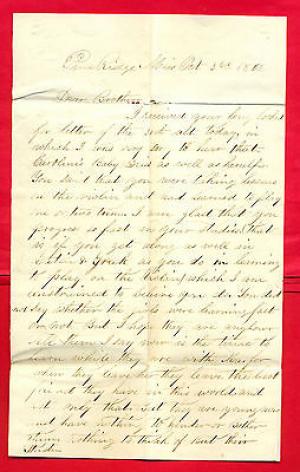 Pine Ridge Miss Oct 3rd 18
Dear Brother
I received your long looked
for letter of the ult today, in
which I was very sorry to hear that
Baby was as well as herself
You said that you were taking lessons
on the violin and had learned to play
one or two tunes I am glad that you
progress so fast in your studies that
is if you get along as well in
Latin & Greek as you do in learning
to play on the Violin, which I am
constrained to believe you do. You did
not say whether the girls were learning fast
or not. But I hope they are any how
tell them I say now is the time to
learn while they are with her for
when they leave her they leave the best
friend they have in this world and
not only that but they are young now
and have nothing to hinder or bother
them nothing to think of but their
Studies